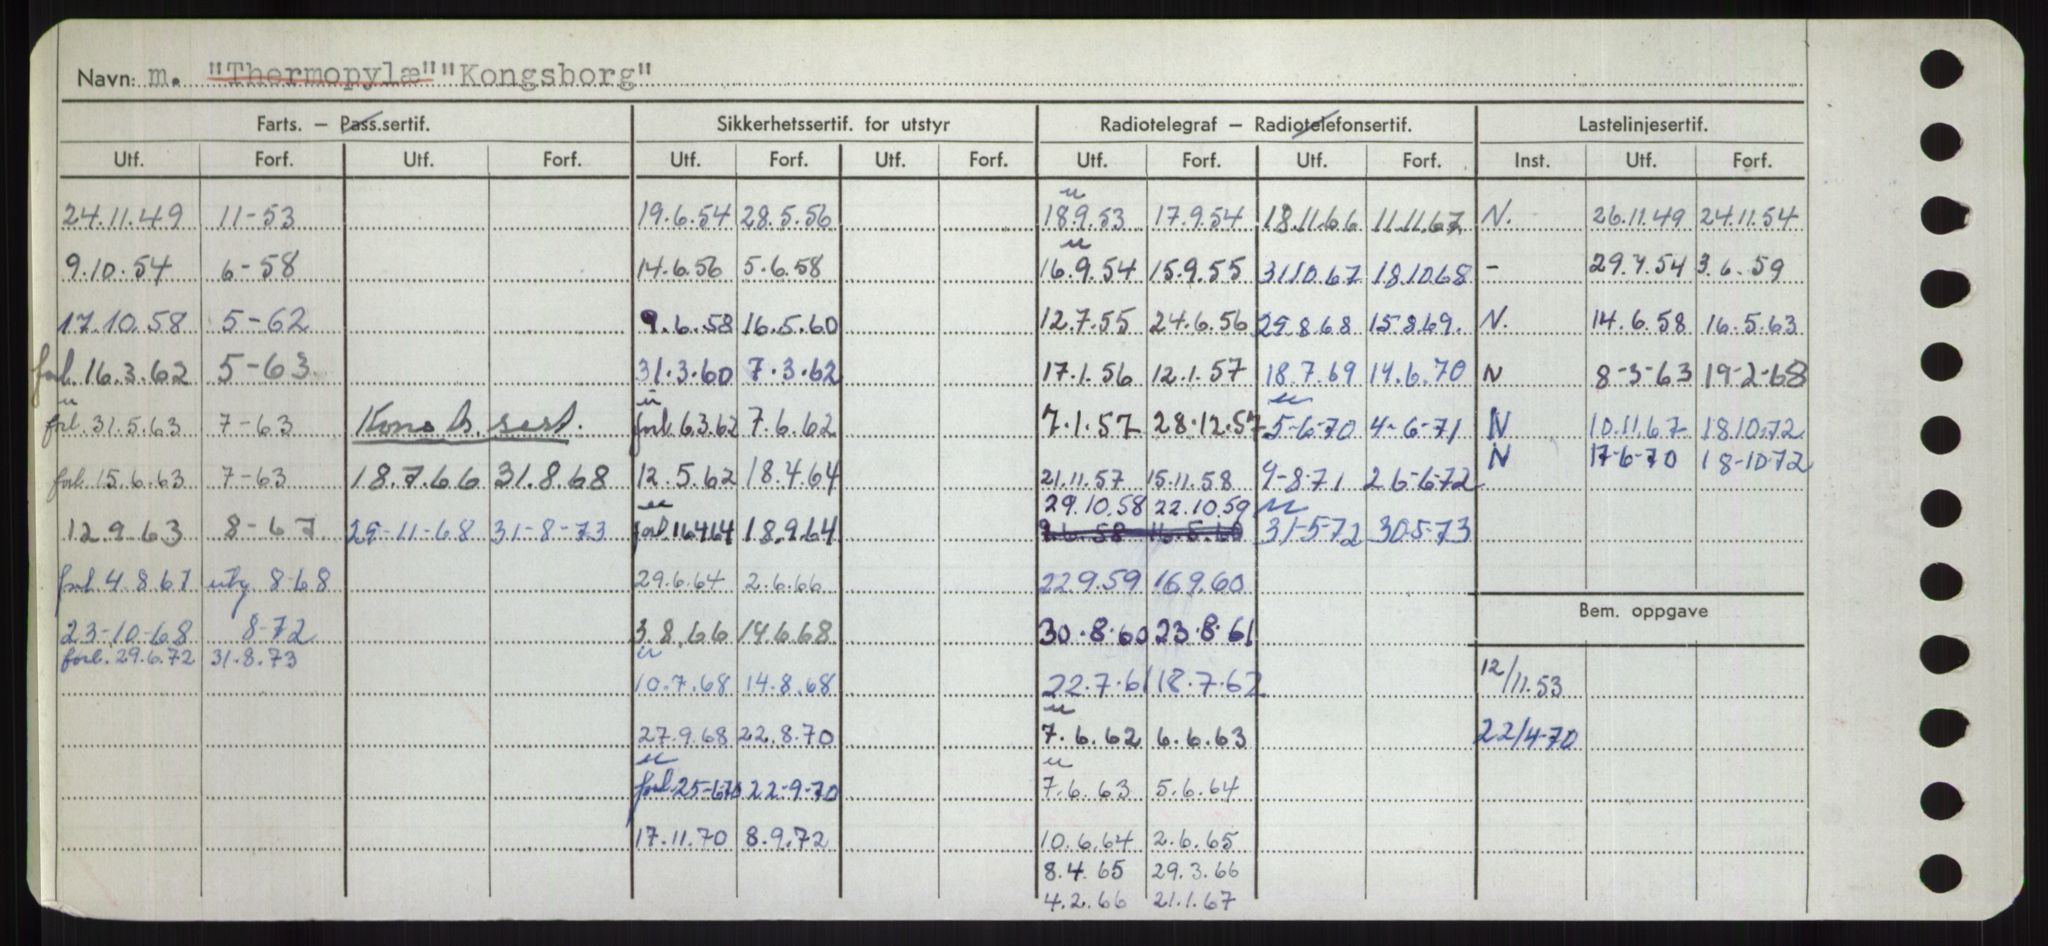 Navn: m. "Thermopylæ" "Kongsborg"
Farts. – Pass.sertif. Sikkerhetssertif. for utstyr Radiotelegraf – Radiotelefonsertif. Lastelinjesertif.
Utf. Forf. Utf. Forf. Utf. Forf. Utf. Forf. Utf. Forf. Utf. Forf. Inst. Utf. Forf.
24.11.49 11-53 19.6.54 28.5.56 18.9.53 17.9.54 18.11.66 11.11.67 N. 26.11.49 24.11.54
9.10.54 6-58 14.6.56 5.6.58 16.9.54 15.9.55 31.10.67 18.10.68 - 29.7.54 3.6.59
17.10.58 5-62 9.6.58 16.5.60 12.7.55 24.6.56 29.8.68 15.8.69. N. 14.6.58 16.5.63
forl. 16.3.62 5-63 31.3.60 7.3.62 17.1.56 12.1.57 18.7.69 14.6.70 N 8-3-63 19-2-68
forl. 31.5.63 7-63 Kons b. sert. forl. 6.3.62 7.6.62 7.1.57 28.12.57 5-6-70 4-6-71 N 10.11.67 18.10.72
N 17-6-70 18-10-72
forl. 15.6.63 7-63 18.7.66 31.8.68 12.5.62 18.4.64 21.11.57 15.11.58 9-8-71 26-6-72
29.10.58 22.10.59
12.9.63 8-67 29-11-68 31-8-73 forl. 16.4.64 18.9.64 9.6.58 16.5.60 31-5-72 30.5-73
forl 4.8.67 utg. 8-68 29.6.64 2.6.66 22.9.59 16.9.60
Bem. oppgave
23-10-68 8-72 3.8.66 14.6.68 30.8.60 23.8.61
forl. 29.6.72 31.8.73
12/11.53
10.7.68 14.8.68 22.7.61 18.7.62
27.9.68 22.8.70 7.6.62 6.6.63 22/4-70
forl. 25-6-70 22-9-70 7.6.63 5.6.64
17.11.70 8.9.72 10.6.64 2.6.65
8.4.65 29.3.66
4.2.66 21.1.67